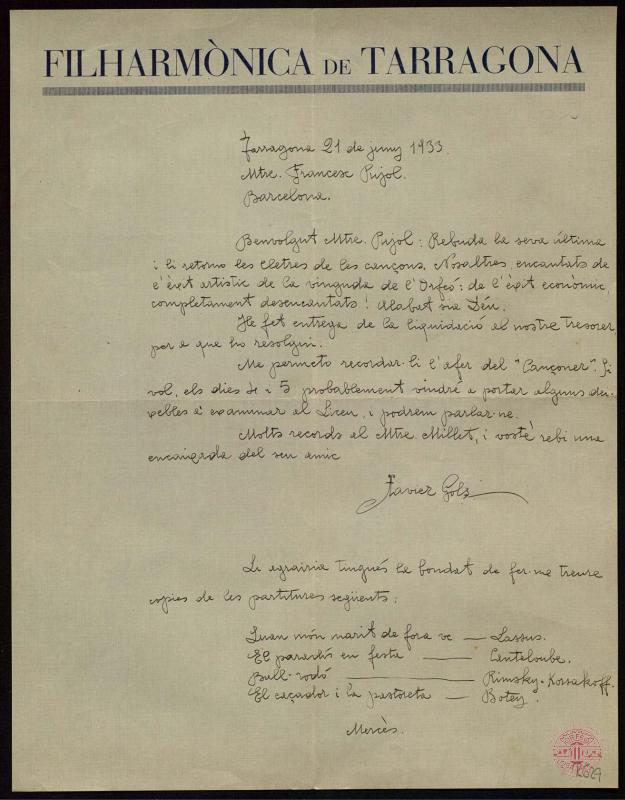 FILHARMÒNICA DE TARRAGONA
Tarragona 21 de juny 1933.
Mtre. Francesc Pujol.
Barcelona.
Benvolgut Mtre. Pujol: Rebuda la seva última
i li retorno les lletres de les cançons. Nosaltres, encantats de
l'èxit artístic de la vinguda de l'Orfeó: de l'èxit econòmic,
completament desencantats! Alabat sia Déu.
He fet entrega de la liquidació al nostre tresorer
per a que ho resolgui.
Me permeto recordar-li l'afer del "Cançoner". Si
vol, els dies 4 i 5 probablement vindré a portar alguns dei-
xebles a examinar al Liceu, i podrem parlar-ne.
Molts records al Mtre. Millet, i vostè rebi una
encaixada del seu amic
Xavier Gols
Li agrairia tingués la bondat de fer-me treure
copies de les partitures següents:
Quan món marit de fora ve — Lassus.
El paradís en festa — Canteloube.
Ball-rodó — Rimsky-Korsakoff.
El caçador i la pastoreta — Botey.
Mercès.